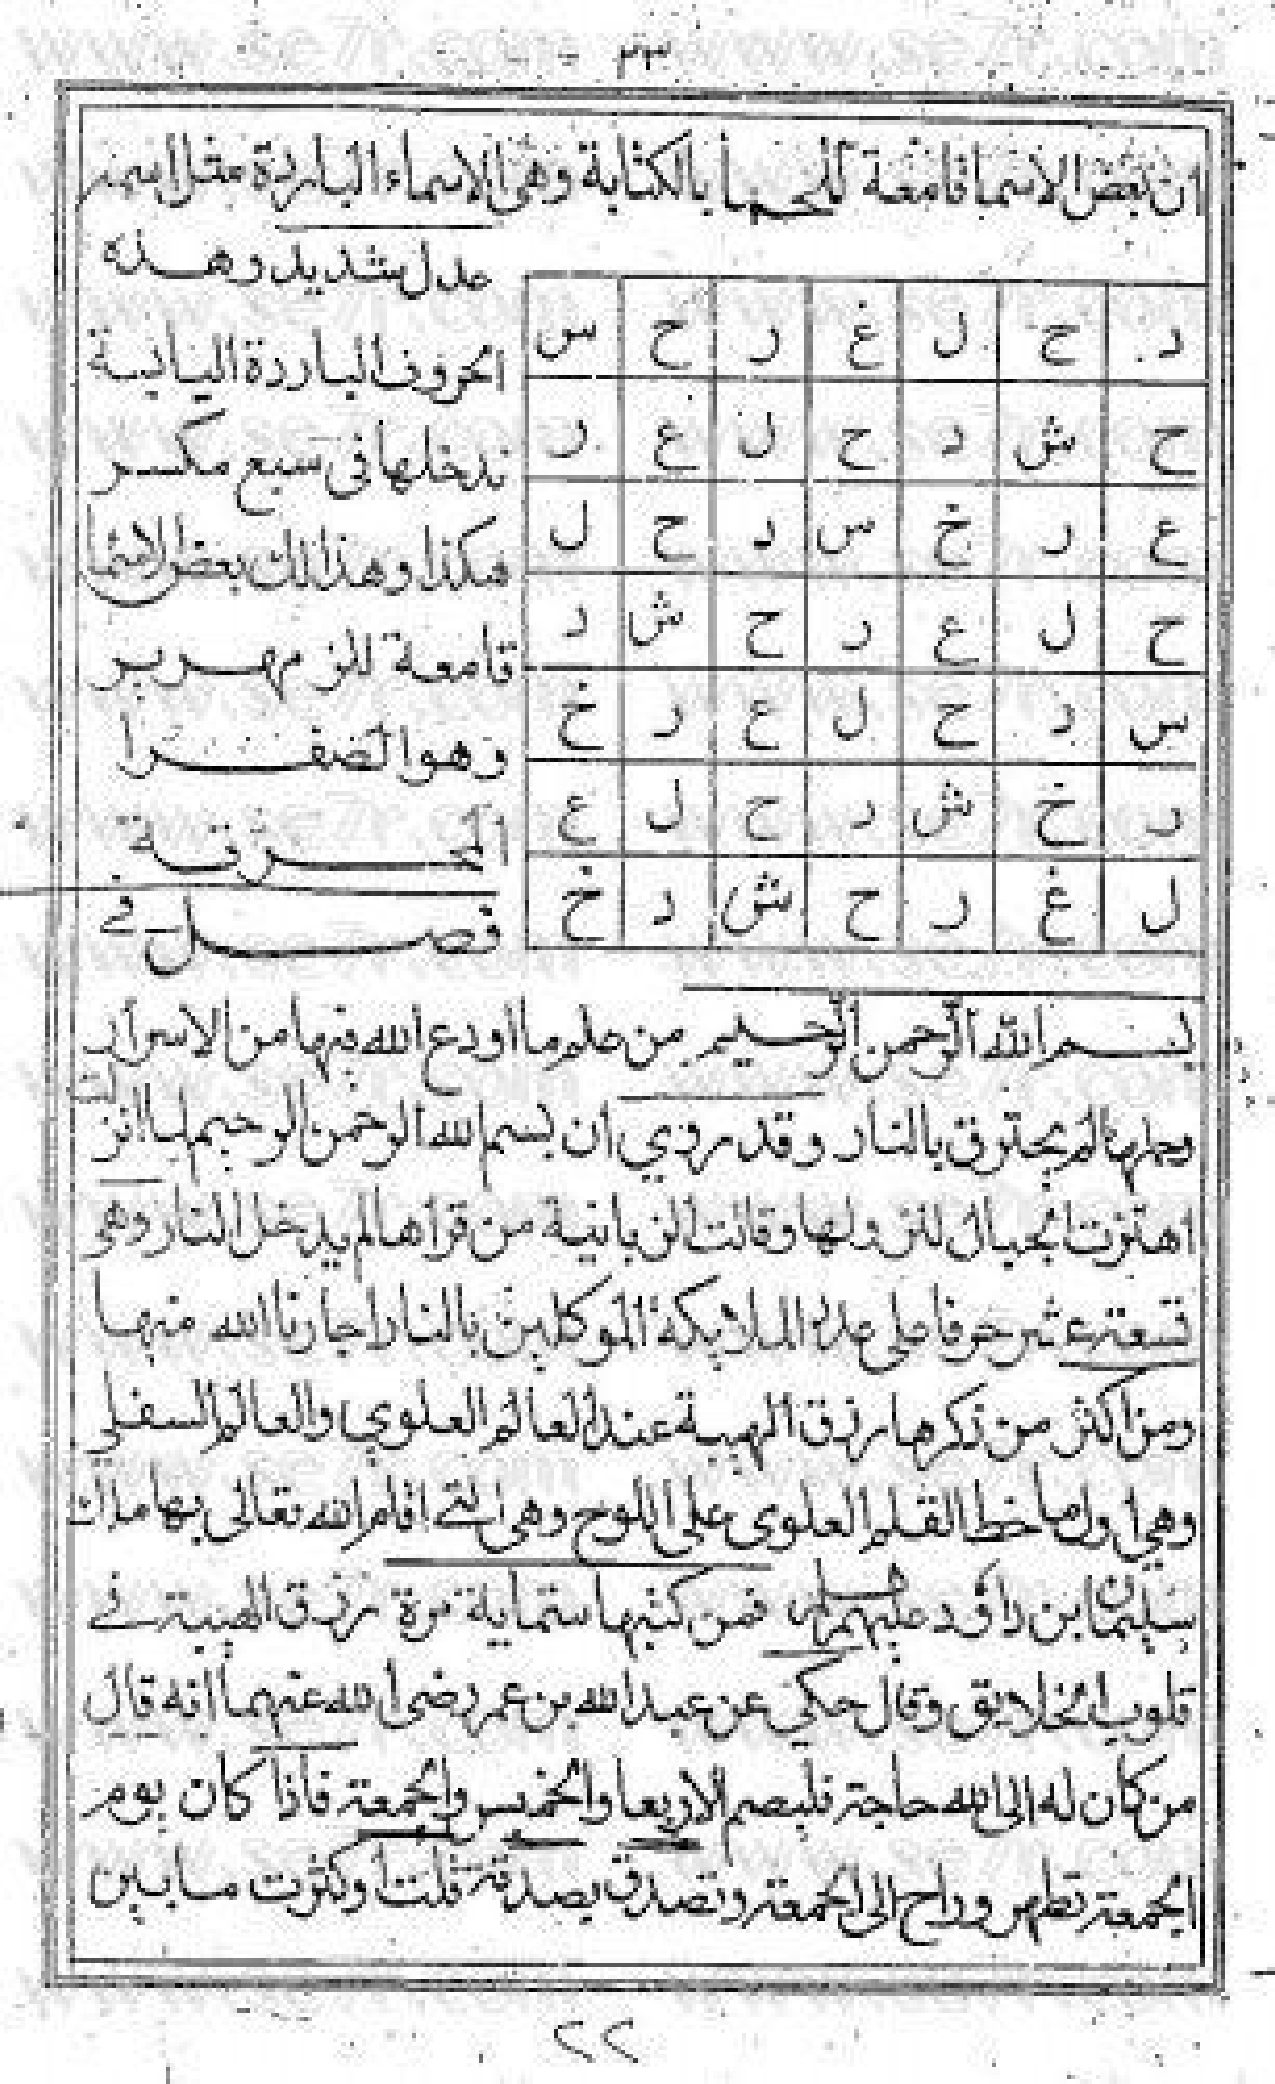 ٣٣
ان بعض الاسما قامعة للحما بالكتابة وهى الاسماء الباردة مثل اسمه
عدل شديد وهذه
الحروف الباردة اليابسة
ندخلها فى سبع مكسر
هكذا وهذلك بعض الاسما
قامعة للزمهرير
وهو الصفرا
المحرقة
فصل في
د ح ل غ ر ح س
ح ش د ح ل ع ر
ع ر خ س د ح ل
ح ل ع ر ح ش د
س د ح ل ع ر خ
ر خ ش د ح ل ع
ل غ ر ح ش د خ
بسم الله الرحمن الرحيم من علم ما اودع الله فيها من الاسرار
وحملها لم يحترق بالنار وقد روي ان بسم الله الرحمن الرحيم لما انزلت
اهتزت الجبال لنزولها وقالت الزبانية من قراها لم يدخل النار وهى
تسعة عشر حرفا على عدد الملايكة الموكلين بالنار اجارنا الله منها
ومن اكثر من ذكرها رزق الهيبة عند العالم العلوي والعالم السفلي
وهي اول ما خط القلم العلوى على اللوح وهى التى اقام الله تعالى بها ملك
سليمان بن داود عليهم السلام فمن كتبها ستماية مرة رزق الهيبة في
قلوب الخلايق وقال حكي عن عبد الله بن عمر رضى الله عنهما انه قال
من كان له الى الله حاجة فليصم الاربعا والخميس والجمعة فاذا كان يوم
الجمعة تطهر وراح الى الجمعة وتصدق بصدقة قلت او كثرت ما بين
٢٢